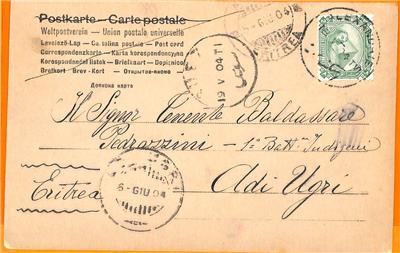 Postkarte - Carte postale
Weltpostverein - Union postale universelle
Levelező-Lap - Ca tolina postale - Post card
Correspondenzkarte - Karta korespondencyjna
Korespondenční lístek - Briefkaart - Dopisnice
Brefkort - Brev-Kort - Открытое письмо
Дописна карта
Il Signor Tenente Baldassare
Pedrazzini - 1° Batt. Indigeni
Eritrea
Adi Ugri
19 V 04
6-GIU 04
6-GIU 04
ERITREA
UGRI